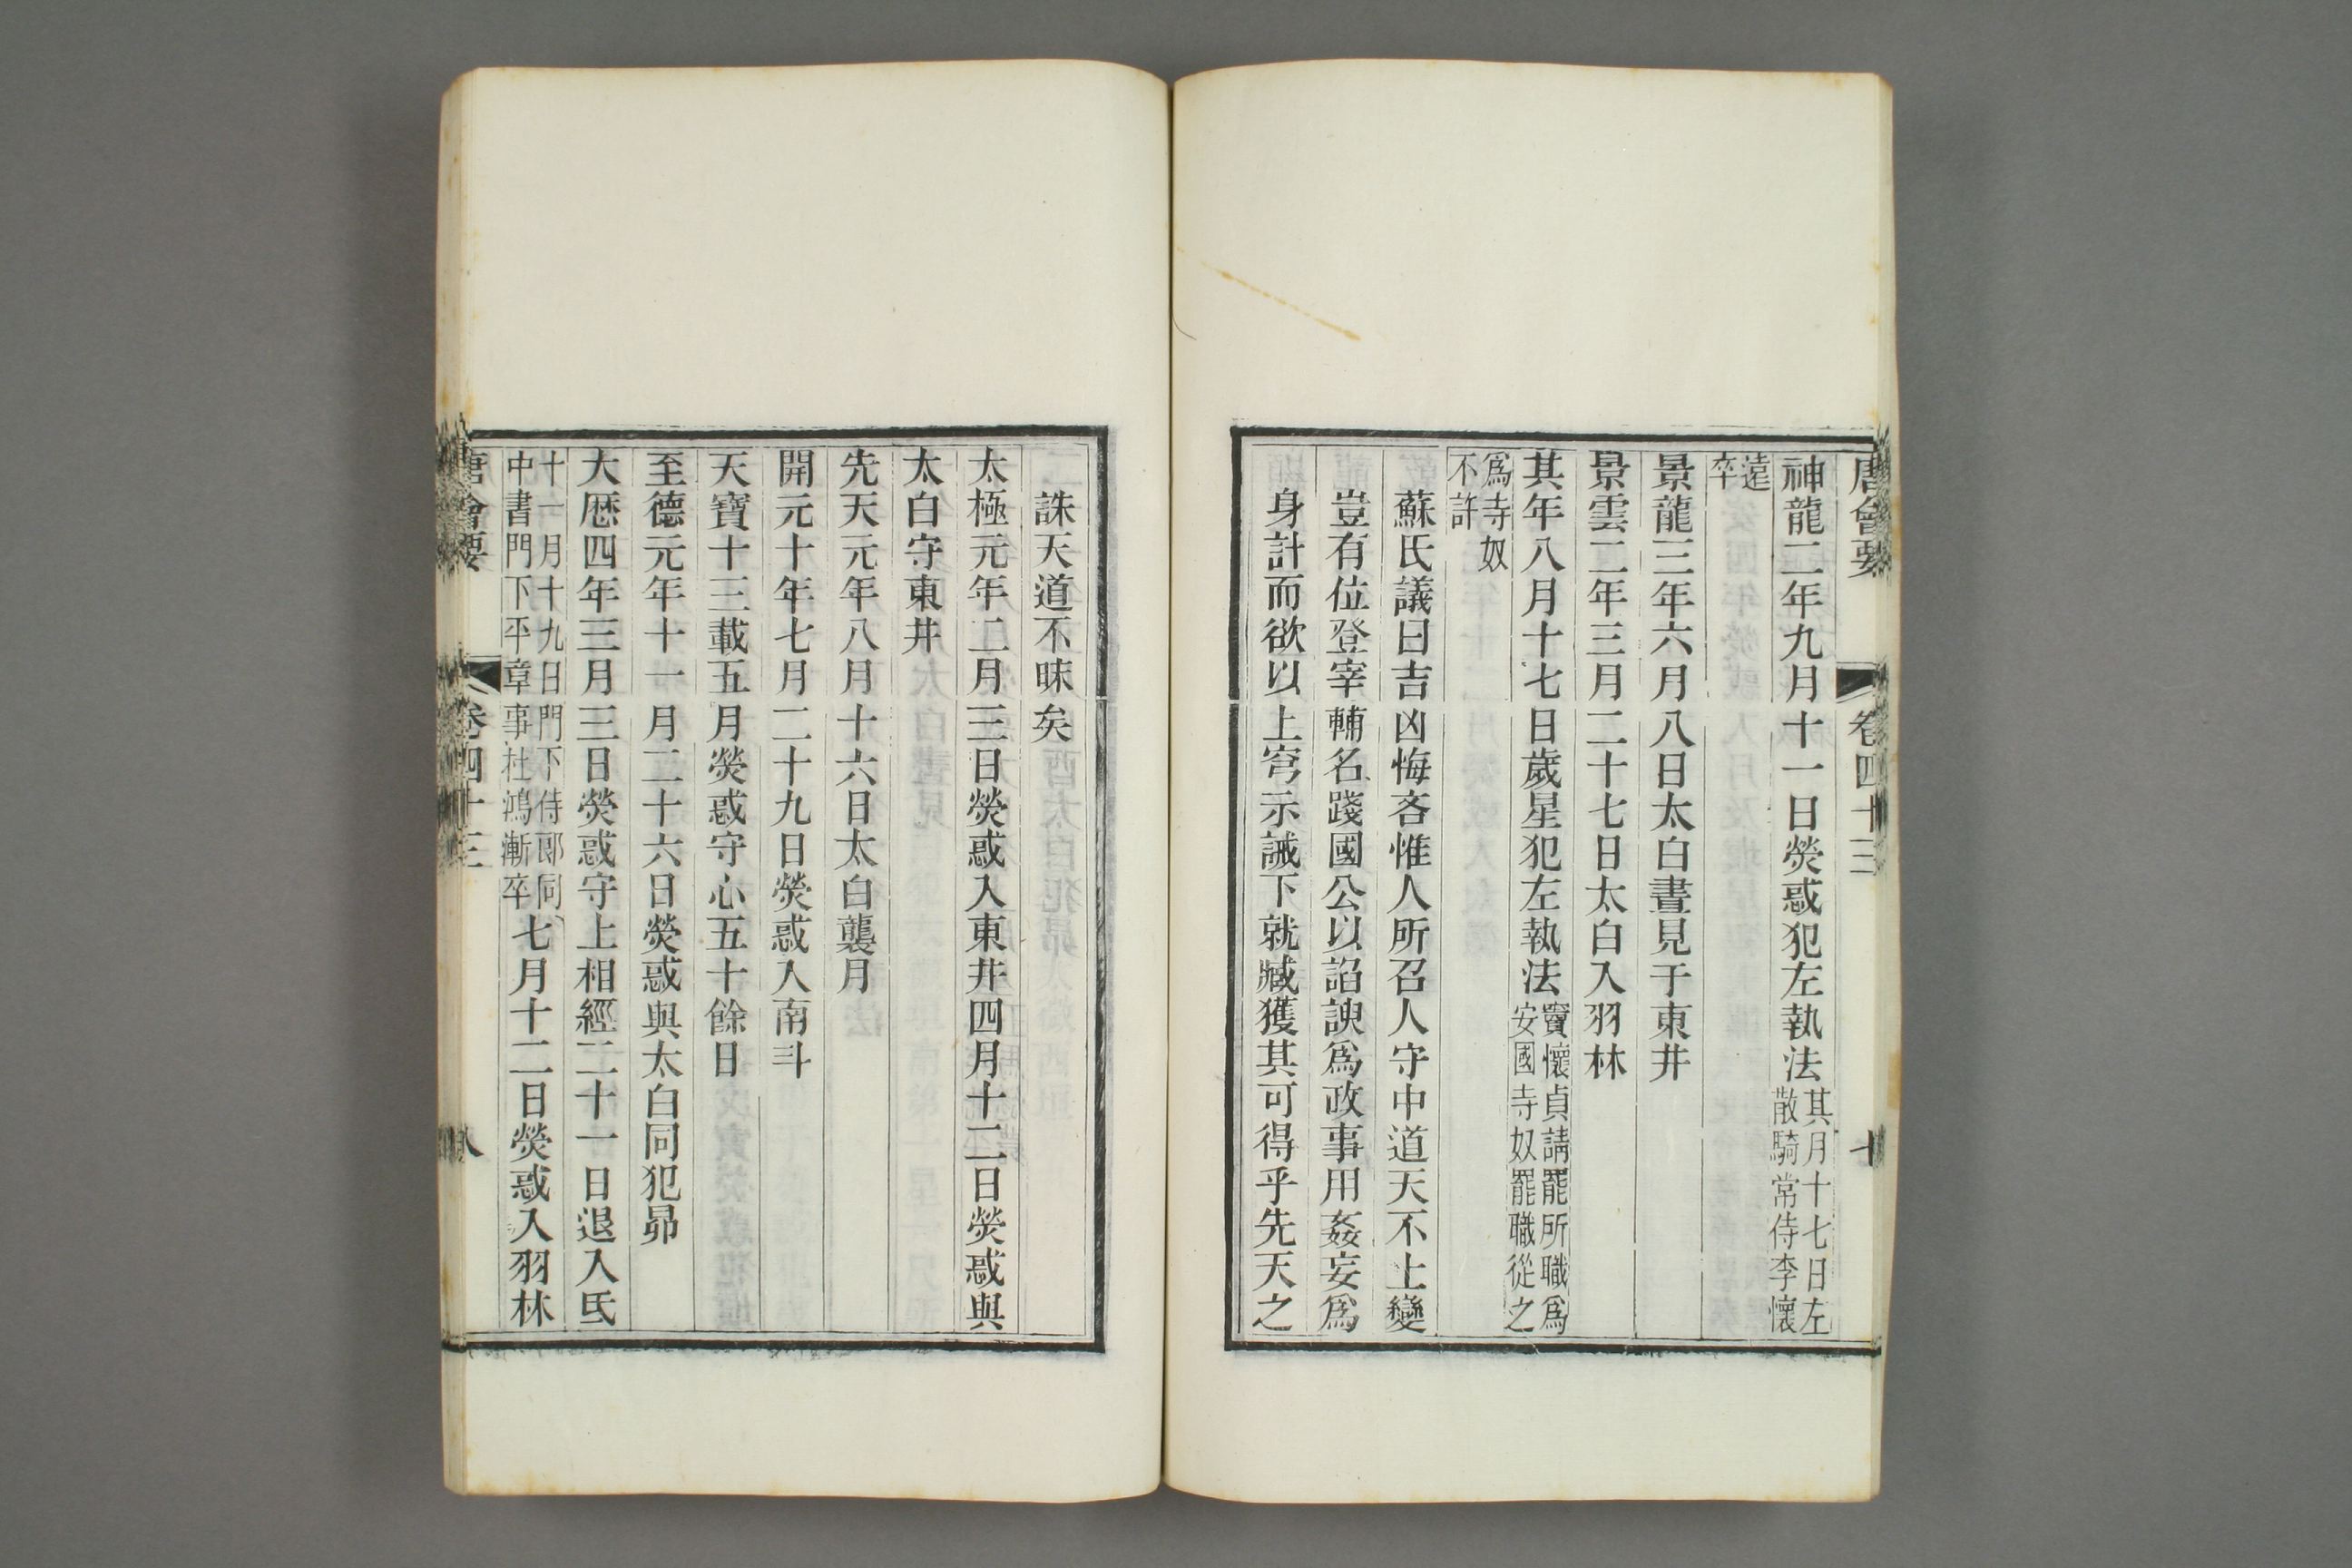 唐會要 卷四十三 七
神龍二年九月十一日熒惑犯左執法其月十七日左散騎常侍李懷
遠卒
景龍三年六月八日太白晝見于東井
景雲二年三月二十七日太白入羽林
其年八月十七日歲星犯左執法竇懷貞請罷所職爲安國寺奴罷職從之
爲寺奴不許
蘇氏議曰吉凶悔吝惟人所召人守中道天不上變
豈有位登宰輔名踐國公以諂諛爲政事用姦妄爲
身計而欲以上穹示誡下就臧獲其可得乎先天之
誅天道不昧矣
太極元年二月三日熒惑入東井四月十二日熒惑與
太白守東井
先天元年八月十六日太白襲月
開元十年七月二十九日熒惑入南斗
天寶十三載五月熒惑守心五十餘日
至德元年十一月二十六日熒惑與太白同犯昴
大歷四年三月三日熒惑守上相經二十一日退入氐
十一月十九日門下侍郞同中書門下平章事杜鴻漸卒七月十二日熒惑入羽林
唐會要 卷四十三 八